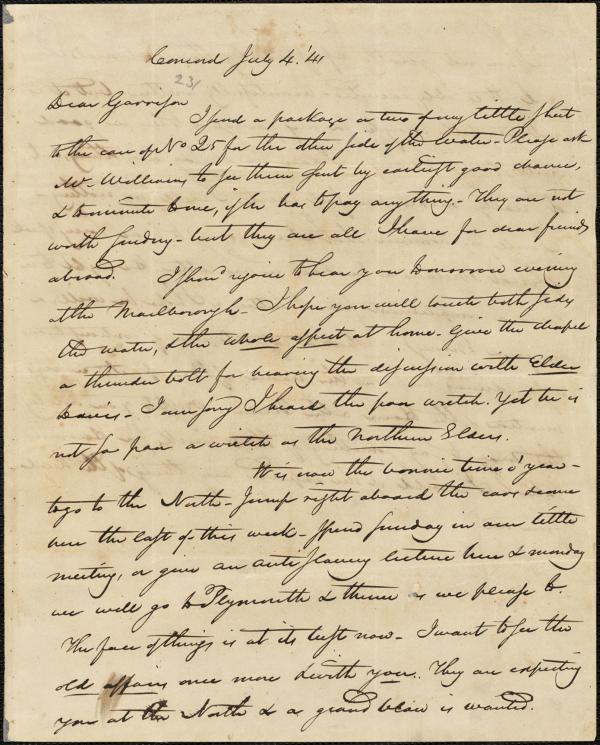 Concord July 4. '41
231
Dear Garrison
I send a package or two of my little sheet
to the care of No 25 for the other side of the water - Please ask
Mr Williams to see them sent by earliest good chance,
& to minute to me, if he has to pay anything. - They are not
worth sending - but they are all I have for dear friends
abroad. I shoud rejoice to hear you tomorrow evening
at the Marlborough - I hope you will touch both sides
the water, & the whole aspect at home - Give the chapel
a thunder bolt for having the discussion with Elder
Davis - I am sorry I heard the poor wretch. Yet he is
not so poor a wretch as the Northern Elders.
It is now the bonnie time o' year -
to go to the North - Jump right aboard the cars & come
here the last of this week - Spend Sunday in our little
meeting, or give an anti slavery lecture here & monday
we will go to Plymouth & thence as we please to.
The face of things is at its best now - I want to see the
old affairs once more & with you. They are expecting
you at the North & a grand is wanted.